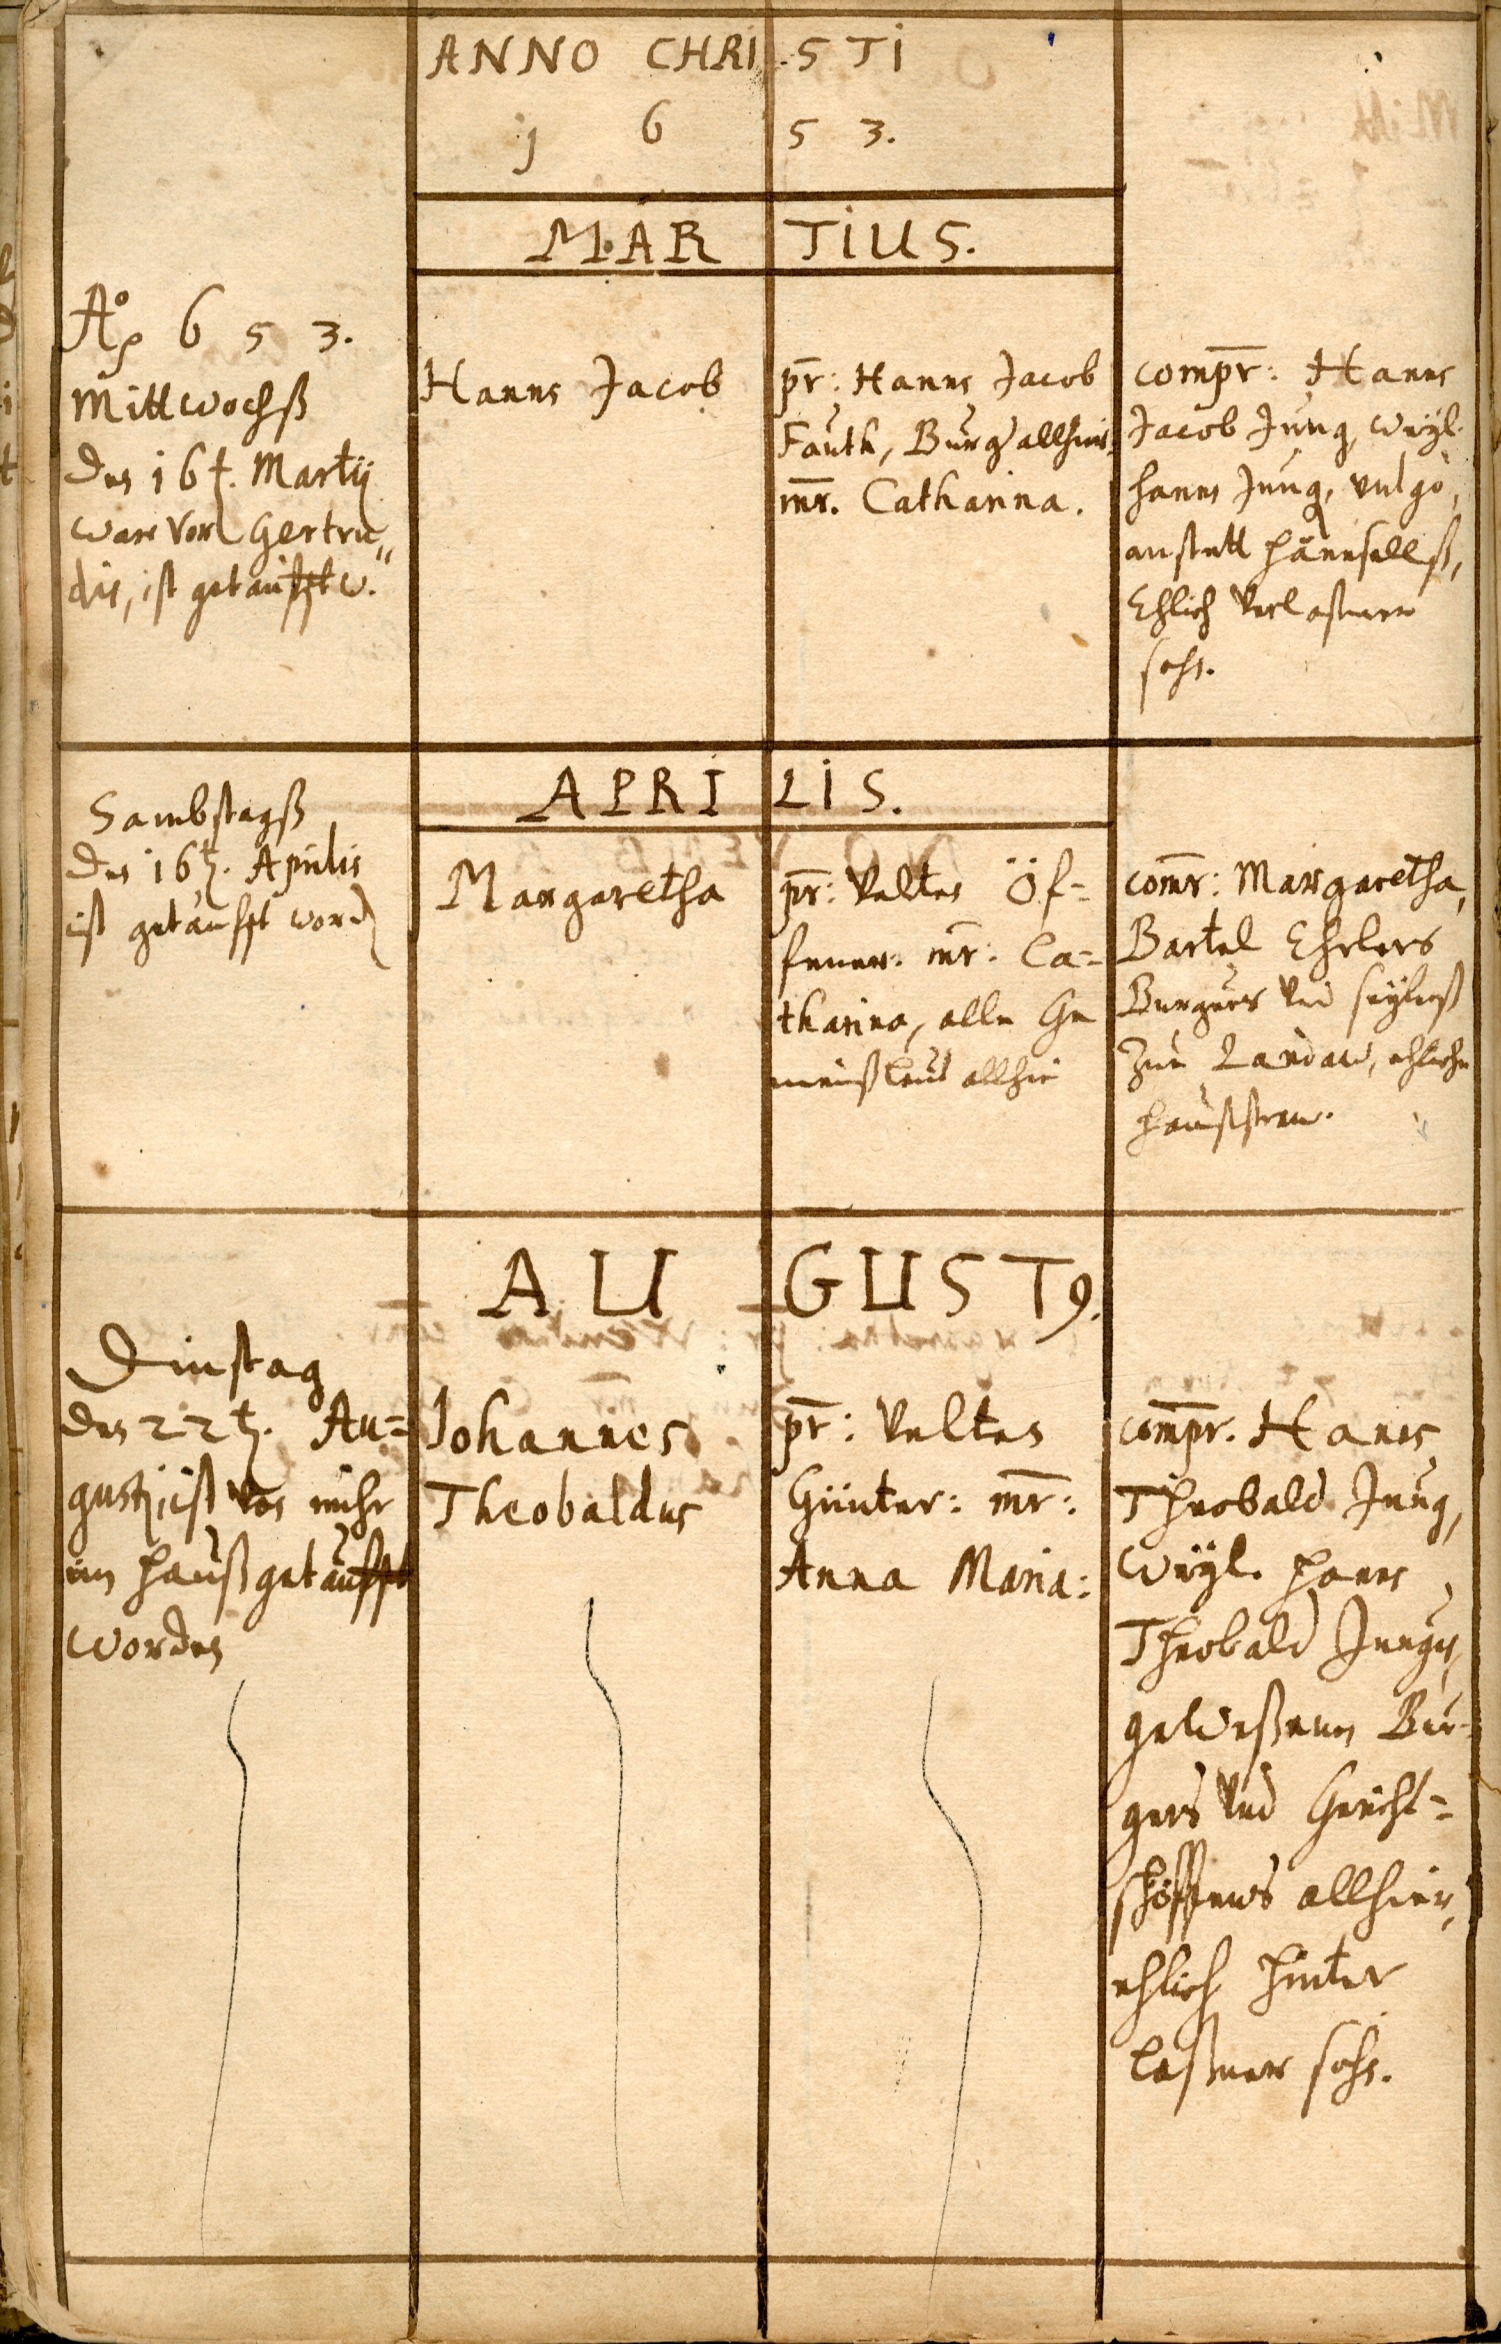 ANNO CHRISTI
1 6 5 3.
MARTIUS.
Aō 653.
Mittwochß
den 16t. Martij
ware vor Gertru„
dis, ist getaufft w.
Hanns Jacob
pr̄: Hanns Jacob
Fauth, Burg allhier,
mr̄. Catharina.
compr̄: Hanns
Jacob Jung, weÿl.
hanns Jung, vulgò,
anstatt hännsellß,
Ehlich verlaßener
sohn.
APRILIS.
Sambstagß
den 16t. Aprilis
ist getaufft word
Margaretha
pr̄: Velten Öf=
fener: mr̄: Ca=
tharina, alle Ge
meinßleut allhie
comr̄: Margaretha,
Bartel Ehrlers
Burgers und seÿlerß
zue Landaw, ehliche
haußfraw.
AUGUST9.
Dinstag
den 22t. Au=
gustj ist von mihr
im hauß getaufft
worden
Iohannes
Theobaldus
pr̄: Velten
Günter: mr̄:
Anna Maria:
compr̄. Hanns
Theobald Jung,
weÿl. hanns
Theobald Jungen,
geweßenen Bur=
gers und Gericht=
schöffens allhier,
ehlich hinter
laßener sohn.